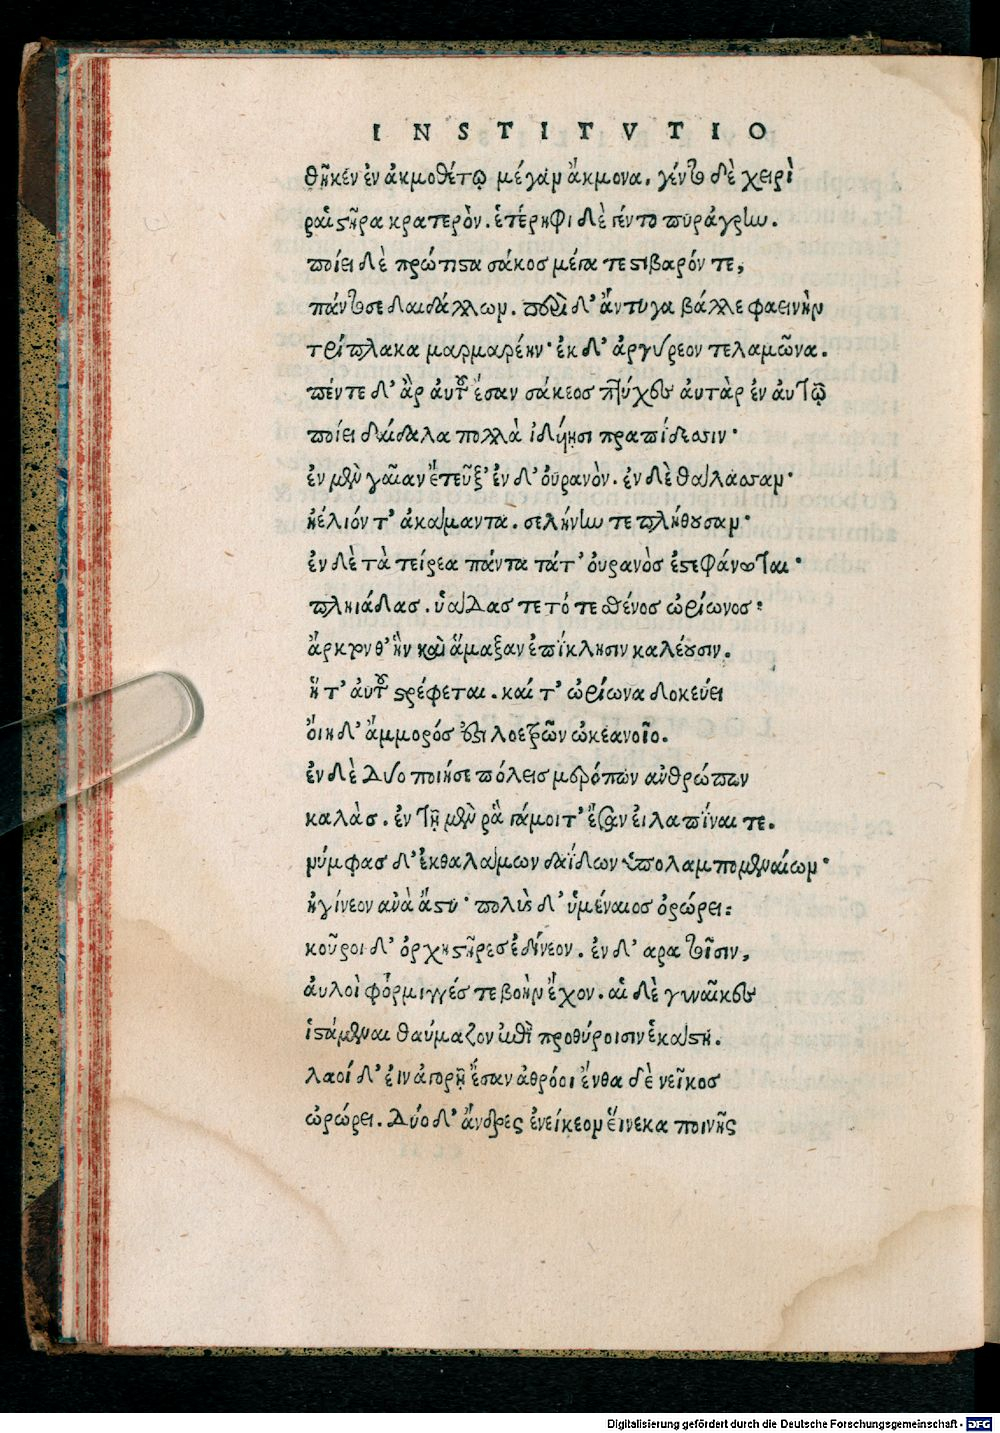 INSTITVTIO
θῆκέν ἐν ἀκμοθέτῳ μέγαν ἄκμονα, γέντο δὲ χειρὶ
ραιστῆρα κρατερὸν. ἑτέρηφι δὲ γέντο πυράγρίω.
ποίει δὲ πρώτιστα σάκοσ μέγα τε στιβαρόν τε,
πάντοσε δαιδάλλων. περὶ δ' ἄντυγα βάλλε φαεινὴν
τρίπλακα μαρμαρέην· ἐκ δ' ἀργύρεον τελαμῶνα.
πέντε δ' ἂρ ἀυτοῦ ἔσαν σάκεοσ πτύχες ἀυτὰρ ἐν ἀυτῶ
ποίει δαίδαλα πολλὰ ἰδύησι πραπίδεσσιν·
ἐν μὲν γαῖαν ἔτευξ' ἐν δ' ὀυρανὸν. ἐν δὲ θαλασσαν·
ἠέλιόν τ' ἀκαμαντα. σελήνην τε πλήθουσαν·
ἐν δὲ τὰ τείρεα πάντα τάτ' ὀυρανὸσ ἐστεφάνωται·
πληιάδασ. ὑαδασ τε τό τε σθένοσ ὠρίωνοσ:
ἄρκτνθ' ἣν καὶ ἅμαξαν ἐπίκλησιν καλέουσιν.
ἥ τ' ἀυτοῦ στρέφεται. καί τ' ὠρίωνα δοκεύει
ὄιη δ' ἄμμορόσ ἐστι λοετρῶν ὠκεανοῖο.
ἐν δὲ Δύο ποίησε πόλεισ μερόπων ἀνθρώπων
καλὰσ. ἐν τῆ μὲν ῥὰ γάμοιτ' ἔσαν ἐιλαπίναι τε.
νύμφασ δ' ἐκθαλαμων δαΐδων ὑπολαμπομεναίων·
ἠγίνεον ἀνὰ ἄστυ· πολὺσ δ' ὑμέναιοσ ὀρώρει:
κοῦροι δ' ὀρχηστῆρεσ ἐδίνεον. ἐν δ' αρα τοῖσιν,
ἀυλοὶ φόρμιγγέσ τε βοὴν ἔχον. αἱ δὲ γυναῖκες
ἱστάμεναι θαύμαζον ἐπὶ προθύροισιν ἑκαστη.
λαοί δ' ἐιν ἀγορῆ ἔσαν ἀθρόοι ἔνθα δὲ νεῖκοσ
ὠρώρει. Δύο δ' ἄνδρες ἐνείκεον ἕινεκα ποινῆς
Digitalisierung gefördert durch die Deutsche Forschungsgemeinschaft - DFG